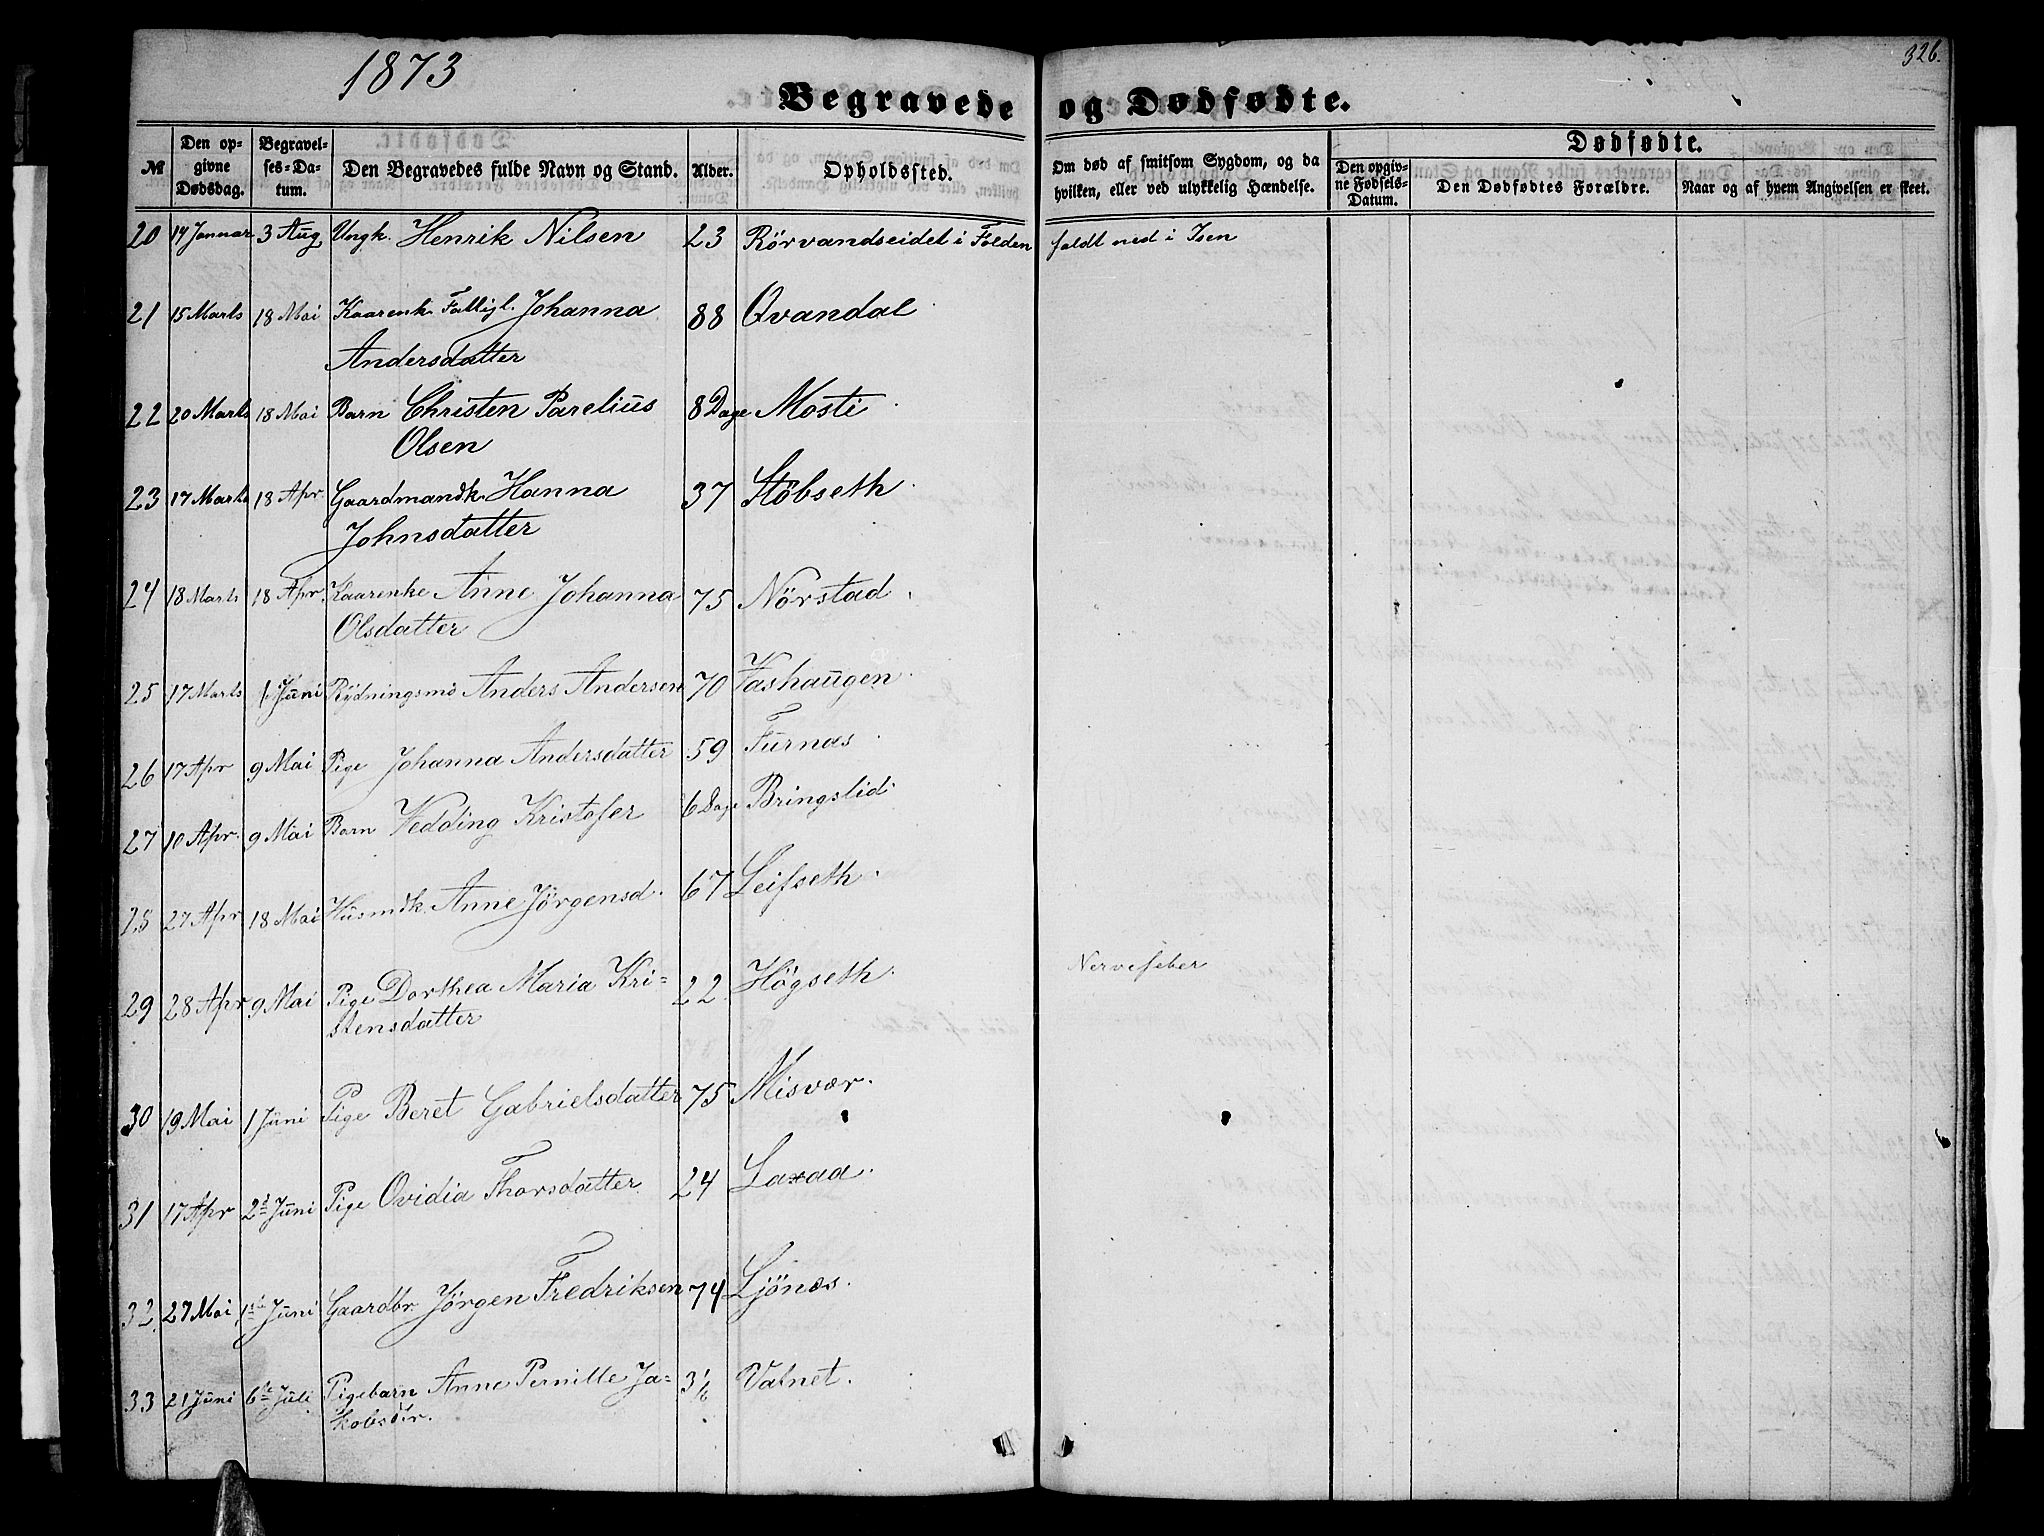 1873
326.
Begravede og Dødfødte.
№
Den opgivne Dødsdag.
Begravelses-Datum.
Den Begravedes fulde Navn og Stand.
Alder.
Opholdssted.
Om død af smitsom Sygdom, og da hvilken, eller ved ulykkelig Hændelse.
Dødfødte.
Den opgivne Fødsels-Datum.
Den Dødfødtes Forældre.
Naar og af hvem Angivelsen er skeet.
20 14 Januar 3 Aug Ungk. Henrik Nilsen 23 Rörvandseidet i Folden faldt ned i Isen
21 15 Marts 18 Mai Kaarenk. Fattigl. Johanna 88 Qvandal
Andersdatter
22 20 Marts 18 Mai Barn Christen Parelius 8 Dage Mosti
Olsen
23 17 Marts 18 Apr Gaardmandk. Hanna 37 Stöbseth
Johnsdatter
24 18 Marts 18 Apr. Kaarenke Anne Johanna 75 Nörstad
Olsdatter
25 17 Marts 1 Juni Rydningsm Anders Andersen 70 Vashaugen
26 17 Apr 9 Mai Pige Johanna Andersdatter 59 Furnas
27 10 Apr. 9 Mai Barn Vedding Kristofer 6 Dage Bringslid
28 27 Apr 18 Mai Husmdk. Anne Jörgensd. 67 Leifseth
29 28 Apr 9 Mai Pige Dorthea Maria Kri= 22 Högseth Nervefeber
stensdatter
30 19 Mai 1 Juni Pige Beret Gabrielsdatter 75 Misvær.
31 17 Apr 2d Juni Pige Ovidia Thorsdatter 24 Laxaa
32 27 Mai 1ste Juni Gaardbr Jörgen Fredriksen 74 Ljönes.
33 21 Juni 6te Juli Pigebarn Anne Pernille Ja= 3 1/2 Valnet.
kobsdtr.